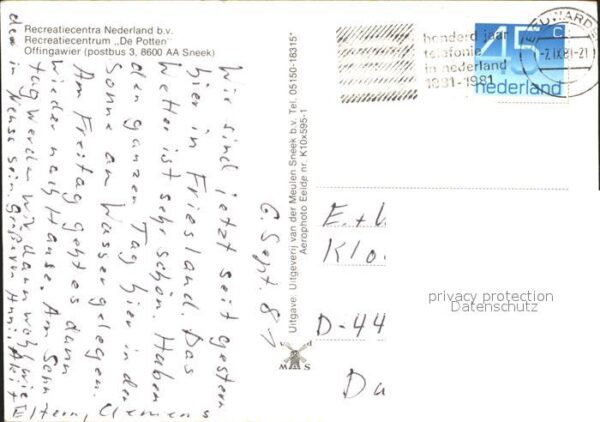 Recreatiecentra Nederland b.v.
Recreatiecentrum „De Potten"
Offingawier (postbus 3, 8600 AA Sneek)
6. Sept. 81
Wir sind jetzt seit gestern
hier in Friesland. Das
Wetter ist sehr schön. Haben
den ganzen Tag hier in der
Sonne am Wasser gelegen.
Am Freitag geht es dann
wieder nach Hause. Am Sonn
tag werden wir dann wohl wie
der in Neuss sein. Grüße von
Eltern, Clemens
Uitgave: Uitgeverij van der Meulen Sneek b.v. Tel. 05150-18315*
Aerophoto Eelde nr. K10x595-1
M S
honderd jaar
telefonie
in nederland
1881-1981
-7.IX.81-21
45 c
nederland
E. + L
Klo.
D-44
Da
privacy protection
Datenschutz